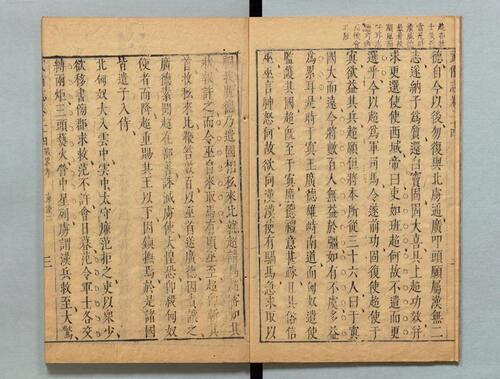 德自今以後勿復與北虜通廣叩頭願屬漢無二
志遂納子爲質還白竇固固大喜具上超功效幷
求更選使使西域帝曰吏如班超何故不遣而更
選乎今以超爲軍司馬令遂前功固復使超使于
寘欲益其兵超願但將本所從三十六人曰于寘
國大而遠今將數百人無益於彊如有不虞多益
爲累耳是時于寘王廣德雄峙南道而匈奴遣使
監護其國超旣至于寘廣德禮意甚疎且其俗信
巫巫言神怒何故欲向漢漢使有騧馬急求取以
祠我廣德乃遣國相私來比就超請馬超密知其
狀報許之而令巫自來取馬有頃巫至超卽斬其
首收私來比鞭笞數百以巫首送廣德因責讓之
廣德素聞超在鄯善誅滅虜使大惶恐卽殺匈奴
使者而降超重賜其王以下因鎮撫焉於是諸國
皆遣子入侍
北匈奴大入雲中雲中太守廉范拒之吏以衆少
欲移書傍郡求救范不許會日暮范令軍士各交
縛兩炬三頭爇火營中星列虜謂漢兵救至大驚